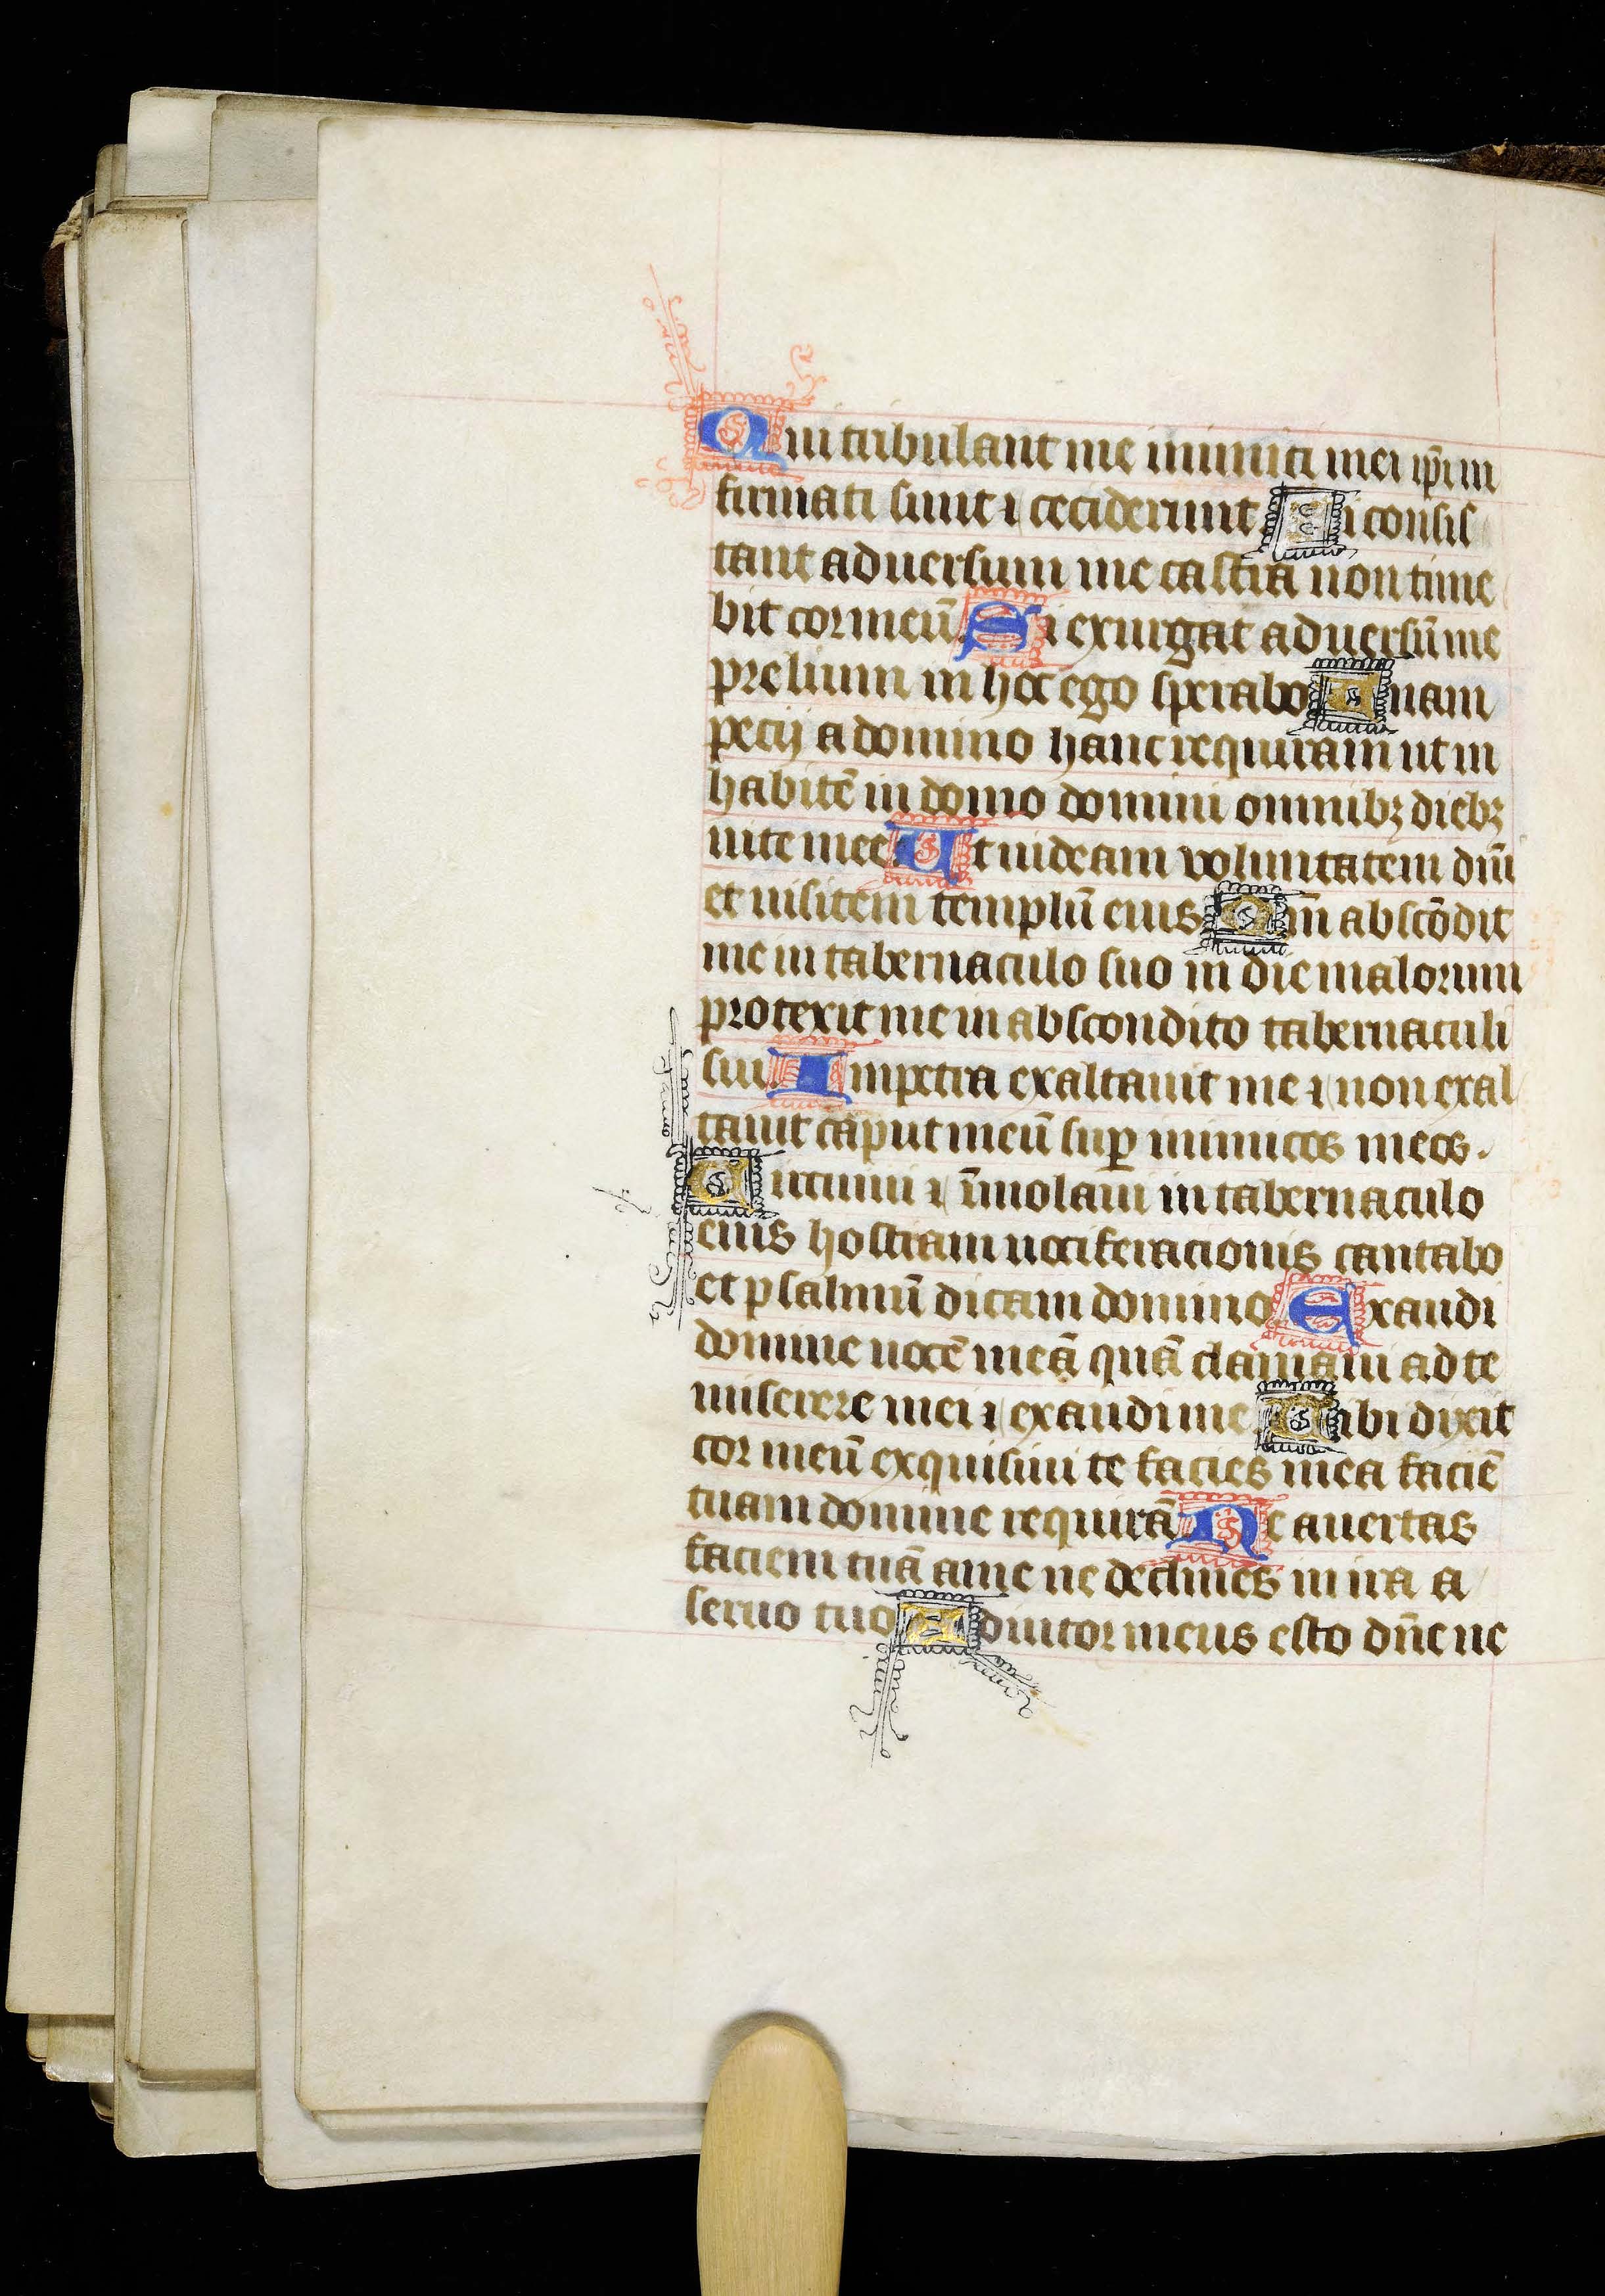 Qui tribulant me inimici mei ip̄i in
firmati sunt ⁊ ceciderunt Si consis
tant aduersum me castra non time
bit cor meū. Si exurgat aduersū me
prelium in hoc ego sperabo Unam
pecij a domino hanc requiram ut in
habitē in domo domini omnibꝫ diebꝫ
uite mee Ut uideam voluntatem dn̄i
et uisitem templū eius Qm̄ abscōdit
me in tabernaculo suo in die malorum
protexit me in abscondito tabernaculi
sui. In petra exaltauit me ⁊ non exal
tauit caput meū suꝑ inimicos meos.
Circuiui ⁊ īmolaui in tabernaculo
eius hostiam uociferacionis cantabo
et psalmū dicam domino Exaudi
domine uocē meā quā clamaui ad te
miserere mei ⁊ exaudi me Tibi dixit
cor meū exquisiui te facies mea faciē
tuam domine requirā Ne auertas
faciem tuā a me ne declines in ira a
seruo tuo Adiutor meus esto dn̄e ne